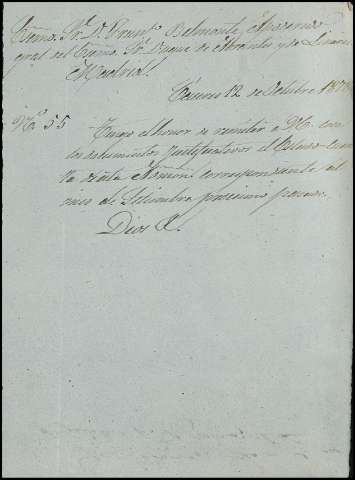 Excmo. Sr. D. Frunp.º Belmonte, Apoderado
gral del Excmo. Sr. Duque de Abrantes y de Linares
Madrid.
Cáceres 12 de Octubre 1878
Nº 55
Tengo el honor de remitir a V.E. con
los documentos justificativos el Estado Cuen
ta de la Admón. correspondiente al
mes de Setiembre proximo pasado.
Dios &.